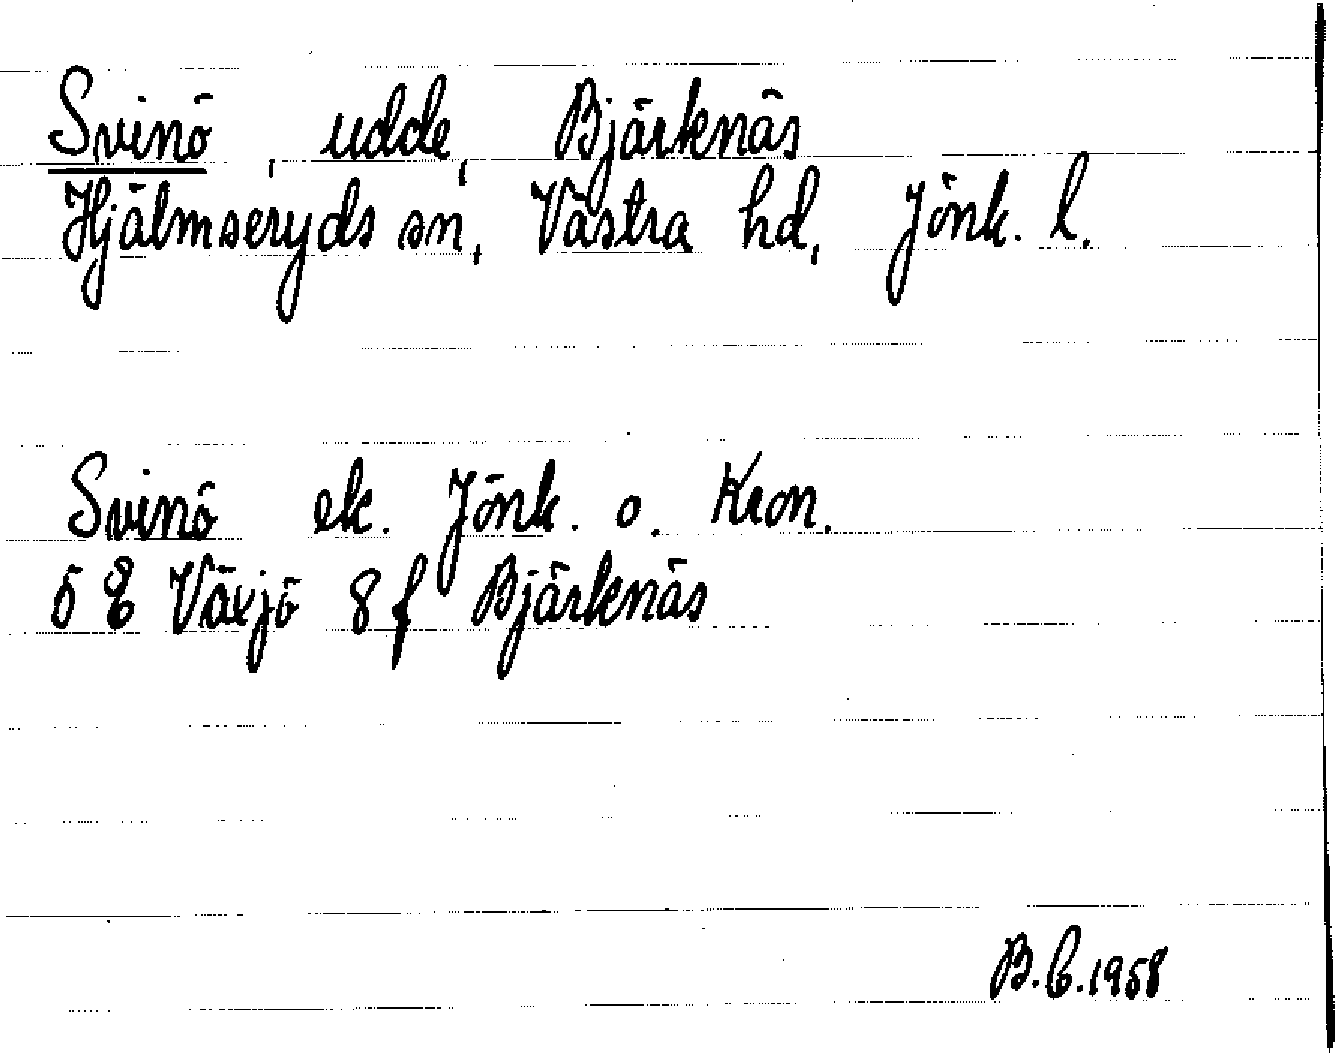 Svinö, udde, Bjärkenäs
Hjälmseryds sn, Västra hd, Jönk. l.
Svinö ek. Jönk. o. Kron.
5 E Växjö 8 f Bjärkenäs
B.C.1958